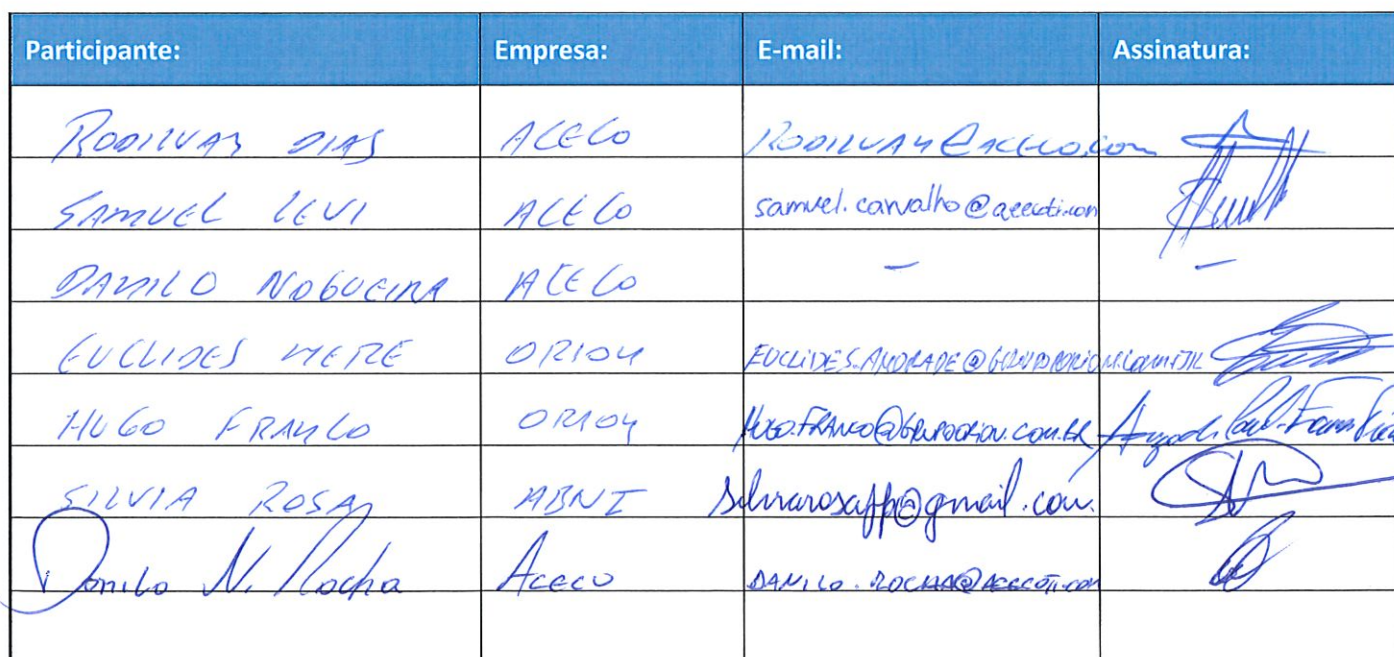 Participante: Empresa: E-mail: Assinatura:
RODILVAN DIAS ACECO RODILVAN@ACECO.com
SAMUEL LEVI ACECO samuel.carvalho@acecoti.com
DANILO NOGUEIRA ACECO - -
EUCLIDES MERE ORION
HUGO FRANCO ORION HUGO.FRANCO@GRUPOORION.COM.BR
SILVIA ROSA ABNT silviarosaffp@gmail.com.
Danilo N. Rocha Aceco DANILO.ROCHA@ACECOTI.com